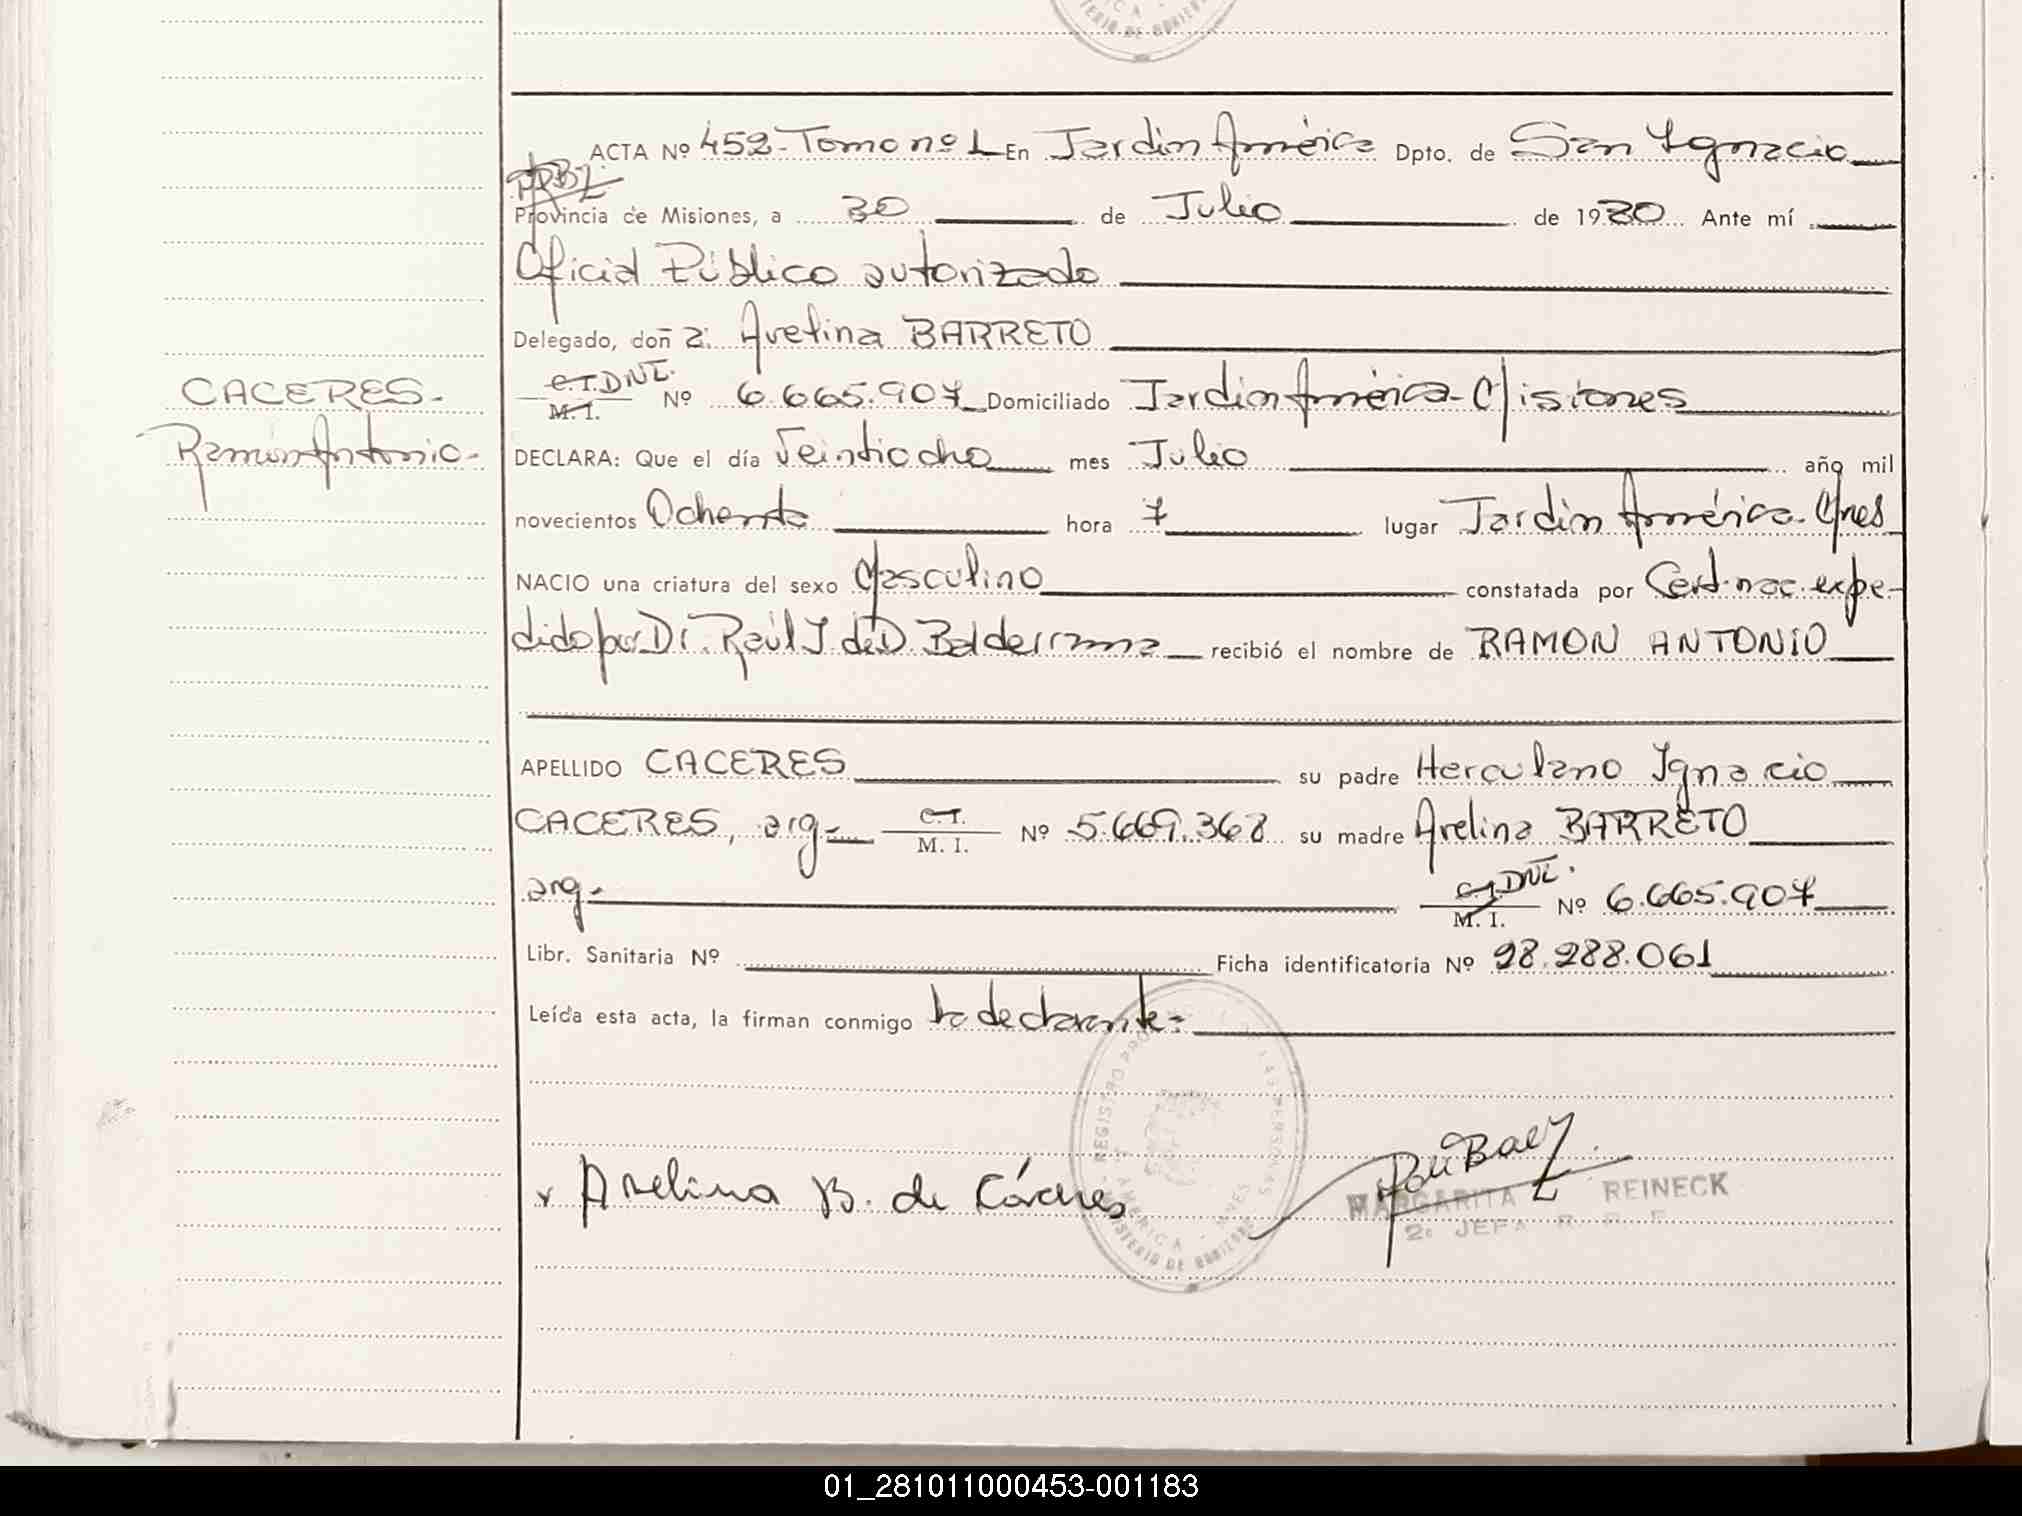 ACTA Nº 452 - Tomo nº 1 En Jardin América Dpto. de San Ignacio
Provincia de Misiones, a 30 de Julio de 1980 Ante mí
Oficial Público autorizado
Delegado, doñ a: Avelina BARRETO
C.I. DNI. M.I. Nº 6.665.907 Domiciliado Jardin América - Misiones
CACERES -
Ramón Antonio -
DECLARA: Que el día Veintiocho mes Julio año mil
novecientos Ochenta hora 7 lugar Jardin América - Mnes
NACIO una criatura del sexo Masculino constatada por Cert. nac. expe-
dido por Dr. Raúl J. de D. Balderrama recibió el nombre de RAMON ANTONIO
APELLIDO CACERES su padre Herculano Ignacio
CACERES, arg - C.I. M. I. Nº 5.669.368 su madre Avelina BARRETO
arg - C.I. DNI. M. I. Nº 6.665.907
Libr. Sanitaria Nº Ficha identificatoria Nº 28.288.061
Leída esta acta, la firman conmigo la declarante -
Avelina B. de Cáceres
MARGARITA REINECK
2º JEFA
REGISTRO DE LAS PERSONAS
AMERICA - MNES
MINISTERIO DE GOBIERNO
01_281011000453-001183